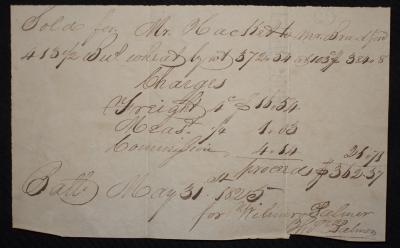 Sold for Mr. Hackett to Mr. Bradford
413½ Bus wheat by wt 372.34 at 103 $ 384.8
Charges
Freight 4c $ 16.54
Meast. ¼ 1.03
Commission 4.14 21.71
proceeds $ 362.37
Balto May 31. 1825
for Wilmer & Palmer
Palmer